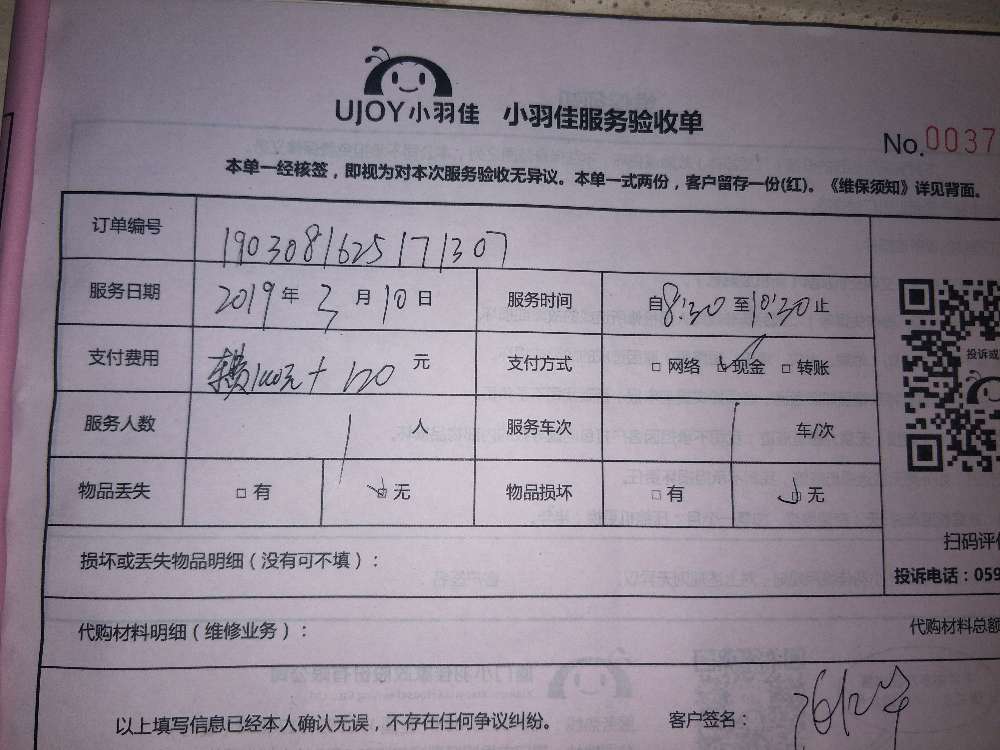 UJOY小羽佳 小羽佳服务验收单
No.0037
本单一经核签，即视为对本次服务验收无异议。本单一式两份，客户留存一份(红)。《维保须知》详见背面。
订单编号 1903081625171307
服务日期 2019年3月10日 服务时间 自8:30至10:30止
支付费用 100元+120元 支付方式 □网络 □现金 □转账
投诉或
服务人数 1人 服务车次 1车/次
物品丢失 □有 □无 物品损坏 □有 □无
扫码评
损坏或丢失物品明细（没有可不填）：
投诉电话：059
代购材料明细（维修业务）：
代购材料总额
以上填写信息已经本人确认无误，不存在任何争议纠纷。 客户签名：